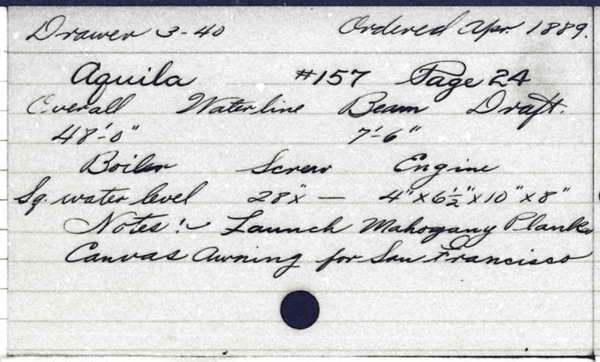 Drawer 3-40 Ordered Apr. 1889.
Aquila #157 Page 24
Overall Waterline Beam Draft.
48'-0" 7'-6"
Boiler Screw Engine
Sq. water level 28" x — 4" x 6½" x 10" x 8"
Notes:- Launch Mahogany Planks
Canvas Awning for San Francisco